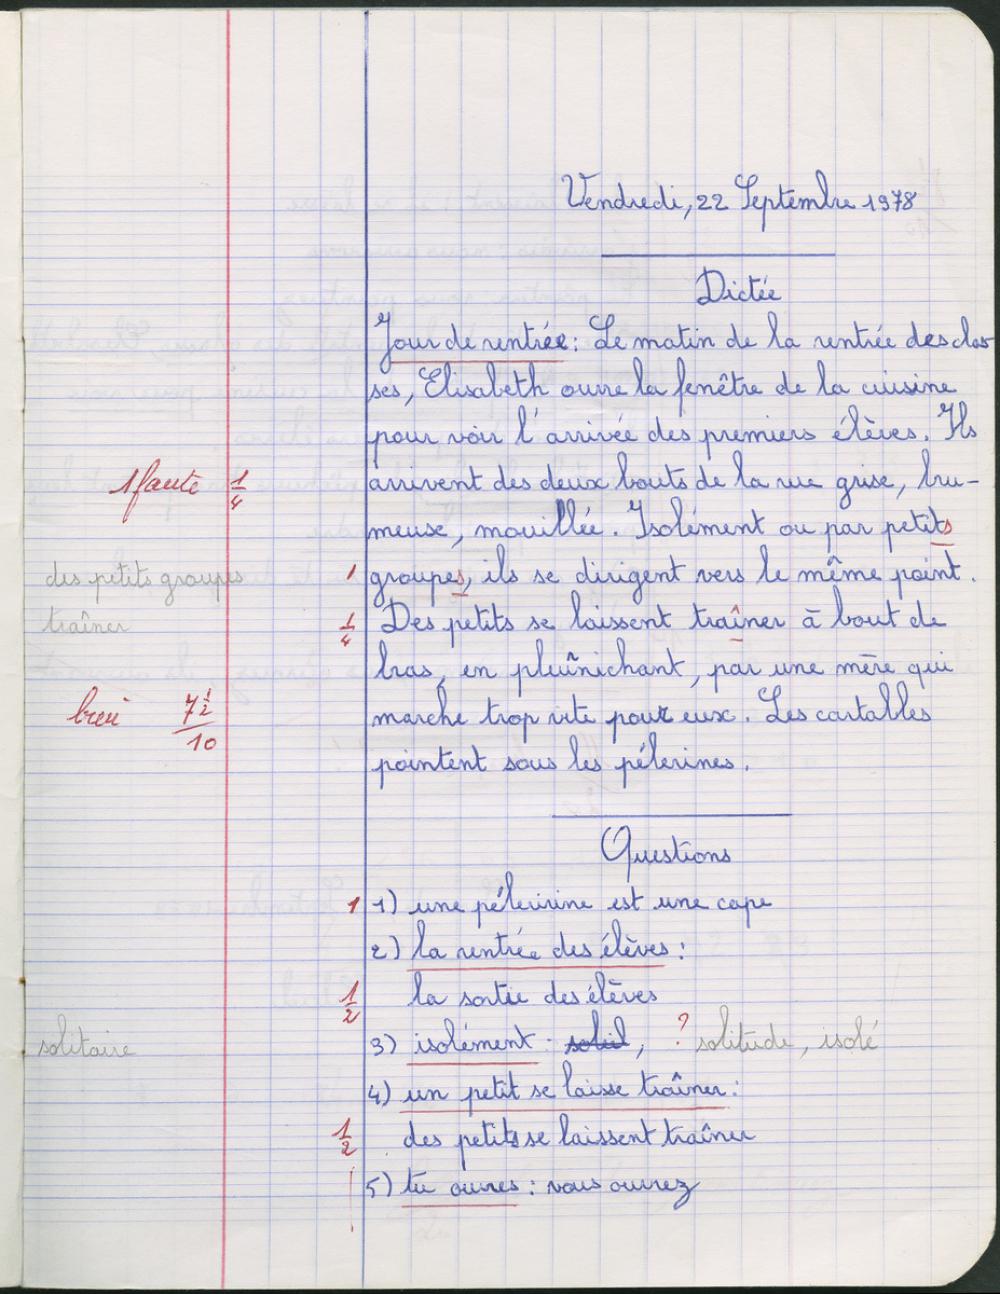 Vendredi, 22 Septembre 1978
Dictée
Jour de rentrée : Le matin de la rentrée des clas
ses, Elisabeth ouvre la fenêtre de la cuisine
pour voir l'arrivée des premiers élèves. Ils
1 faute 1/4 arrivent des deux bouts de la rue grise, bru-
meuse, mouillée. Isolément ou par petits
des petits groupes 1 groupes, ils se dirigent vers le même point.
traîner 1/4 Des petits se laissent traîner à bout de
bras, en pleûnichant, par une mère qui
bien 7 1/2 /10 marche trop vite pour eux. Les cartables
pointent sous les pélerines.
Questions
1 1) une pélerinine est une cape
2) la rentrée des élèves :
1/2 la sortie des élèves
solitaire 3) isolément : soleil, ? solitude, isolé
4) un petit se laisse traîner :
1/2 des petits se laissent traîner
5) tu ouvres : vous ouvrez